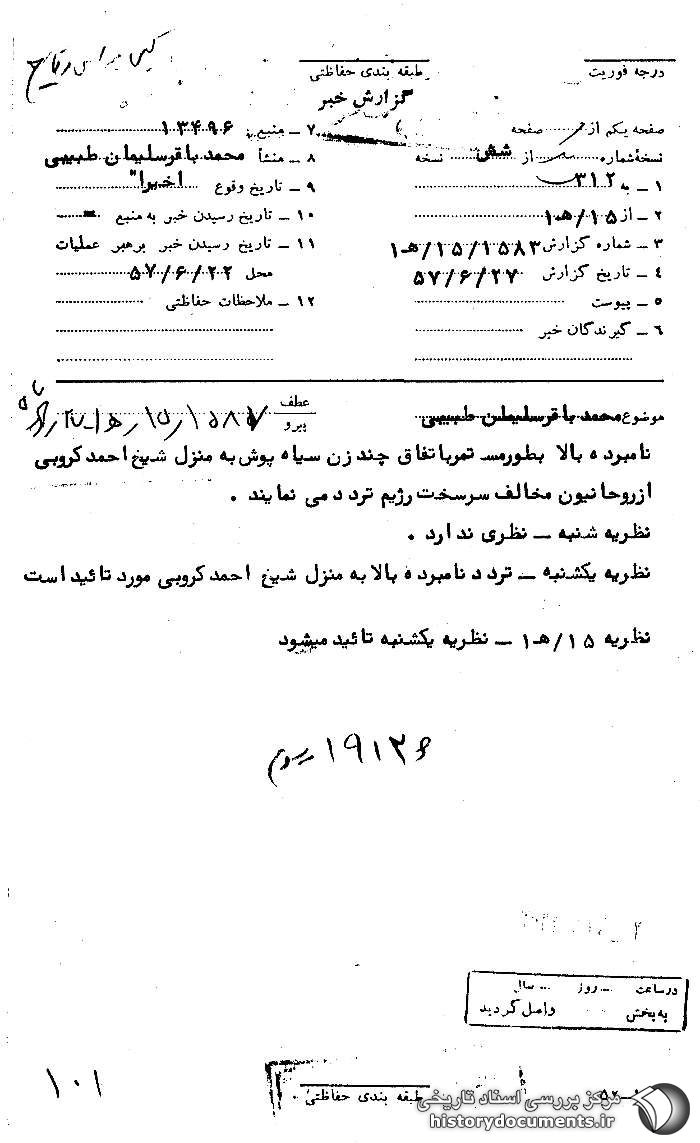 درجه فوریت
طبقه بندی حفاظتی
گزارش خبر
صفحه یکم از صفحه
نسخهٔ شماره از شش نسخه
۱ ــ به ۳۱۲
۲ ــ از ۱۵/هـ۱
۳ ــ شماره گزارش ۱۵۸۳/۱۵/هـ۱
۴ ــ تاریخ گزارش ۵۷/۶/۲۷
۵ ــ پیوست
۶ ــ گیرندگان خبر
۷ ــ منبع ۱۳۴۹۶
۸ ــ منشأ محمد باقر سلیمان طبیبی
۹ ــ تاریخ وقوع اخیرا"
۱۰ ــ تاریخ رسیدن خبر به منبع ــ
۱۱ ــ تاریخ رسیدن خبر برهبر عملیات
محل ۵۷/۶/۲۲
۱۲ ــ ملاحظات حفاظتی
موضوع محمد باقر سلیمان طبیبی
عطف
پیرو
نامبرده بالا بطور مستمر باتفاق چند زن سیاه پوش به منزل شیخ احمد کروبی
از روحانیون مخالف سرسخت رژیم تردد می نمایند .
نظریه شنبه ــ نظری ندارد .
نظریه یکشنبه ــ تردد نامبرده بالا به منزل شیخ احمد کروبی مورد تائید است
نظریه ۱۵/هـ۱ ــ نظریه یکشنبه تائید میشود
۱۹۱۲۶
در ساعت روز سال
به بخش واصل گردید
۱۰۱
طبقه بندی حفاظتی
مرکز بررسی اسناد تاریخی
historydocuments.ir